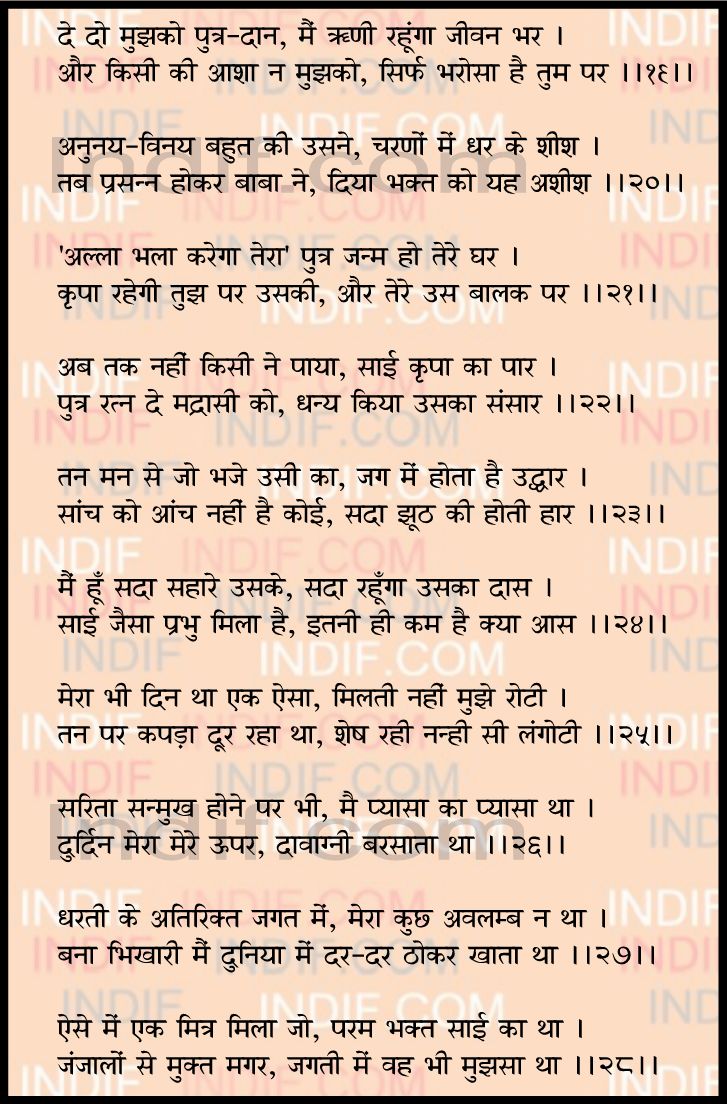 दे दो मुझको पुत्र-दान, मैं ऋणी रहूंगा जीवन भर ।
और किसी की आशा न मुझको, सिर्फ भरोसा है तुम पर ।।१९।।
अनुनय-विनय बहुत की उसने, चरणों में धर के शीश ।
तब प्रसन्न होकर बाबा ने, दिया भक्त को यह अशीश ।।२०।।
'अल्ला भला करेगा तेरा' पुत्र जन्म हो तेरे घर ।
कृपा रहेगी तुझ पर उसकी, और तेरे उस बालक पर ।।२१।।
अब तक नहीं किसी ने पाया, साई कृपा का पार ।
पुत्र रत्न दे मद्रासी को, धन्य किया उसका संसार ।।२२।।
तन मन से जो भजे उसी का, जग में होता है उद्धार ।
सांच को आंच नहीं है कोई, सदा झूठ की होती हार ।।२३।।
मैं हूँ सदा सहारे उसके, सदा रहूँगा उसका दास ।
साई जैसा प्रभु मिला है, इतनी ही कम है क्या आस ।।२४।।
मेरा भी दिन था एक ऐसा, मिलती नहीं मुझे रोटी ।
तन पर कपड़ा दूर रहा था, शेष रही नन्ही सी लंगोटी ।।२५।।
सरिता सन्मुख होने पर भी, मै प्यासा का प्यासा था ।
दुर्दिन मेरा मेरे ऊपर, दावाग्नी बरसाता था ।।२६।।
धरती के अतिरिक्त जगत में, मेरा कुछ अवलम्ब न था ।
बना भिखारी मैं दुनिया में दर-दर ठोकर खाता था ।।२७।।
ऐसे में एक मित्र मिला जो, परम भक्त साई का था ।
जंजालों से मुक्त मगर, जगती में वह भी मुझसा था ।।२८।।